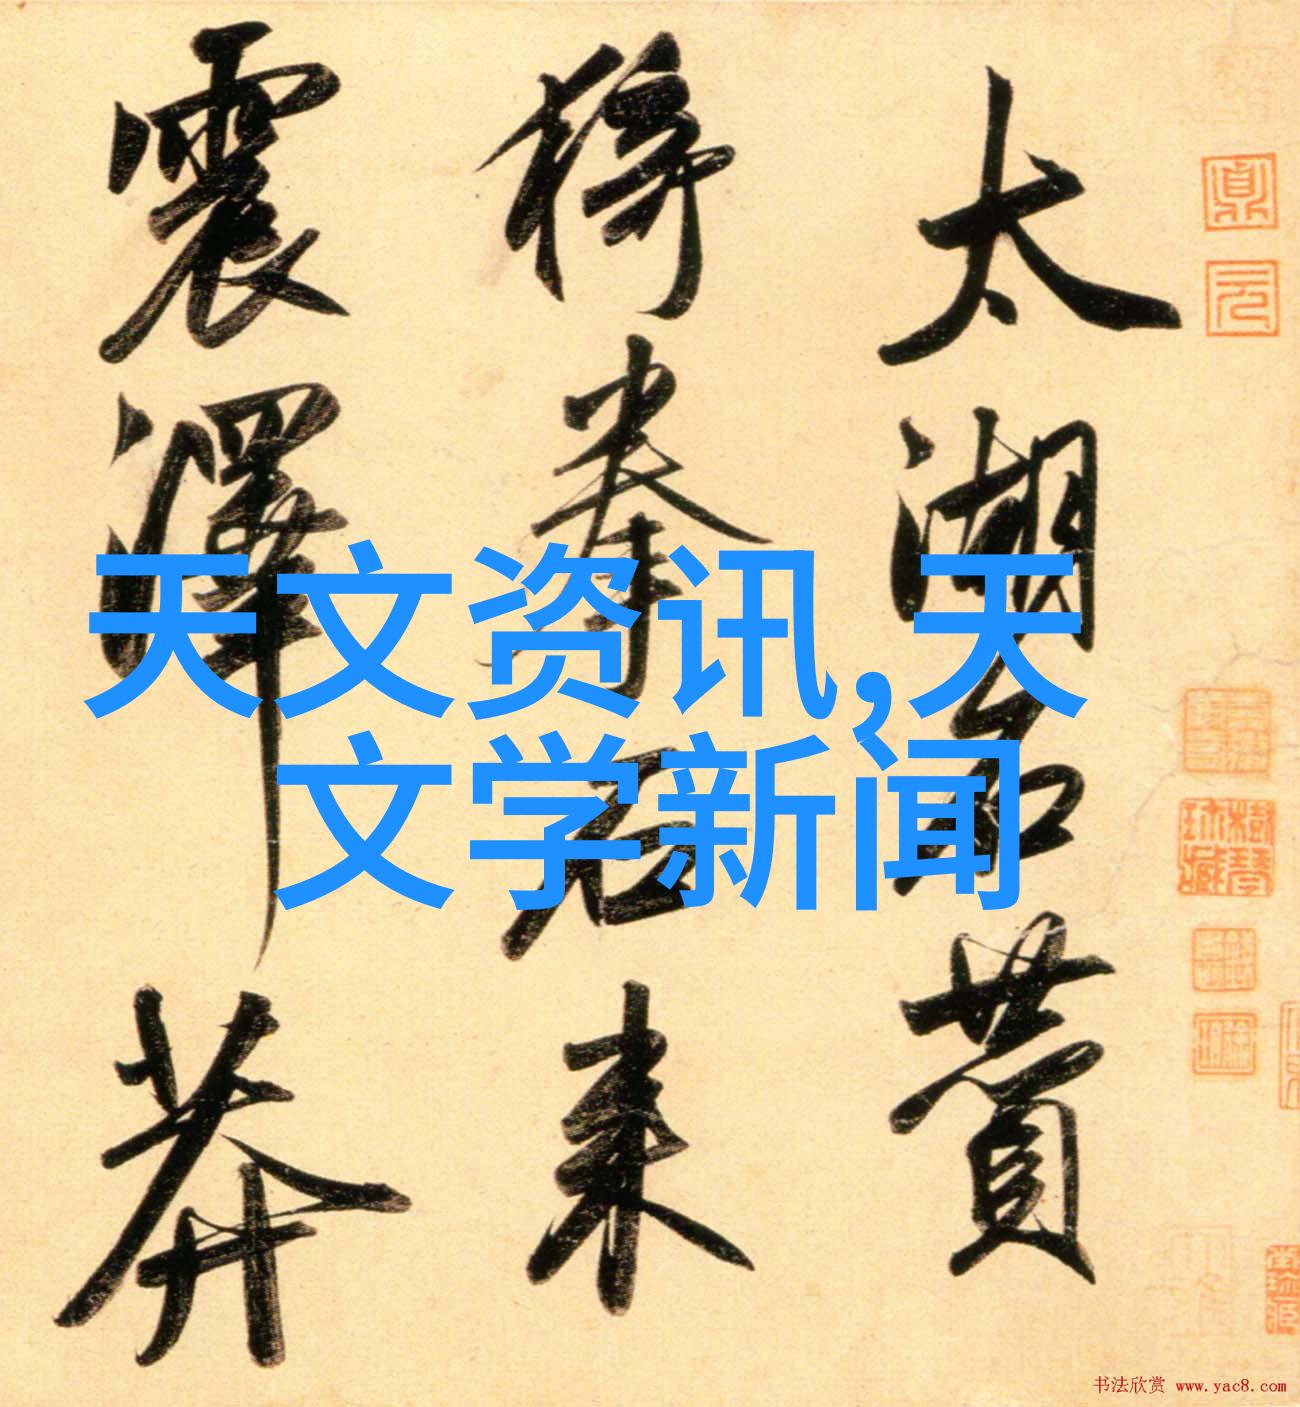 太湖石賛
猗拳石来
震澤莽
天文资讯,天
文学新闻
书法欣赏 www.yac8.com